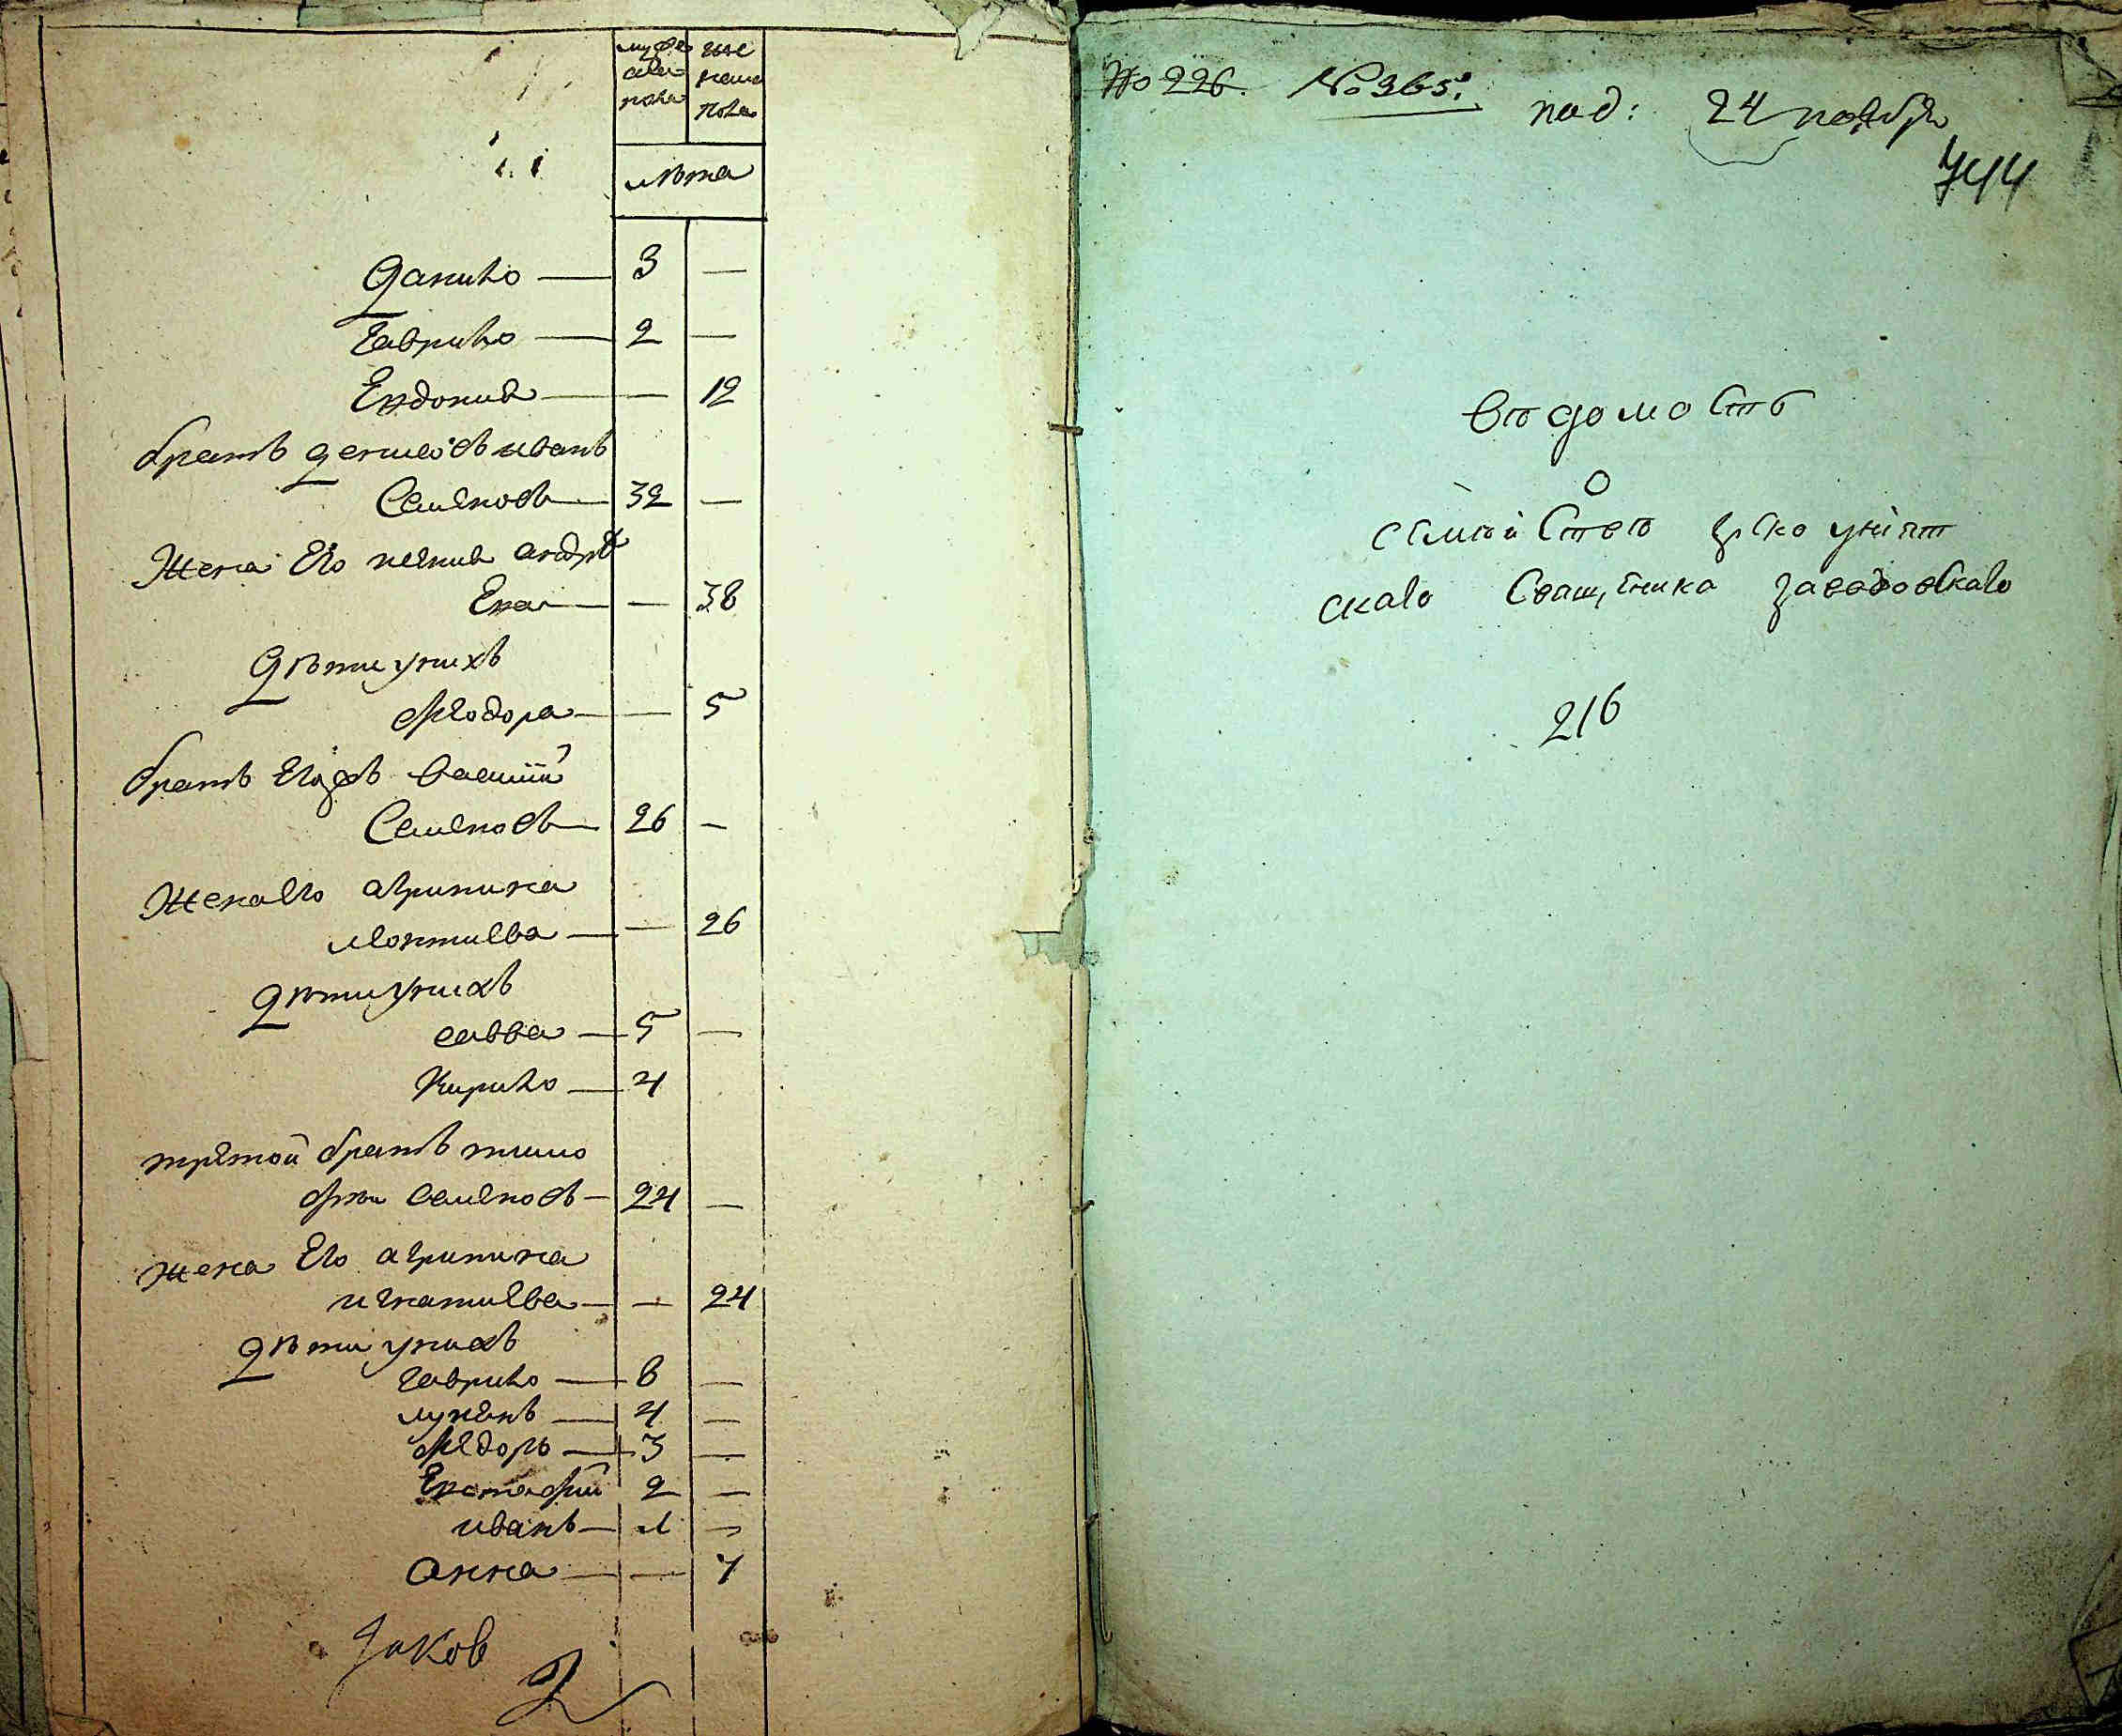 мужеска пола
женска пола
лѣта
Данило — 3 —
Гаврило — 2 —
Евдокия — — 12
братъ денисовъ иванъ
Семеновъ — 32 —
Жена Его ксения андрѣ
Ева — — 38
Дѣти у нихъ
Феодора — — 5
братъ Егожъ василий
Семеновъ — 26 —
Жена Его агрипина
леонтиева — — 26
Дѣти у нихъ
савва — 5 —
Кирило — 4
третой братъ тимо
фѣи Семеновъ — 24 —
жена Его агрипина
игнатиева — — 24
Дѣти у нихъ
гаврило — 8 —
лукянъ — 4 —
Федоръ — 3 —
Евстафий 2 —
иванъ — 1 —
Анна — — 7
Яков
No 226. № 365. под: 24 ноября
744
Вѣдомость
О
семѣйствѣ грекоуният
скаго Священника Завадовскаго
216